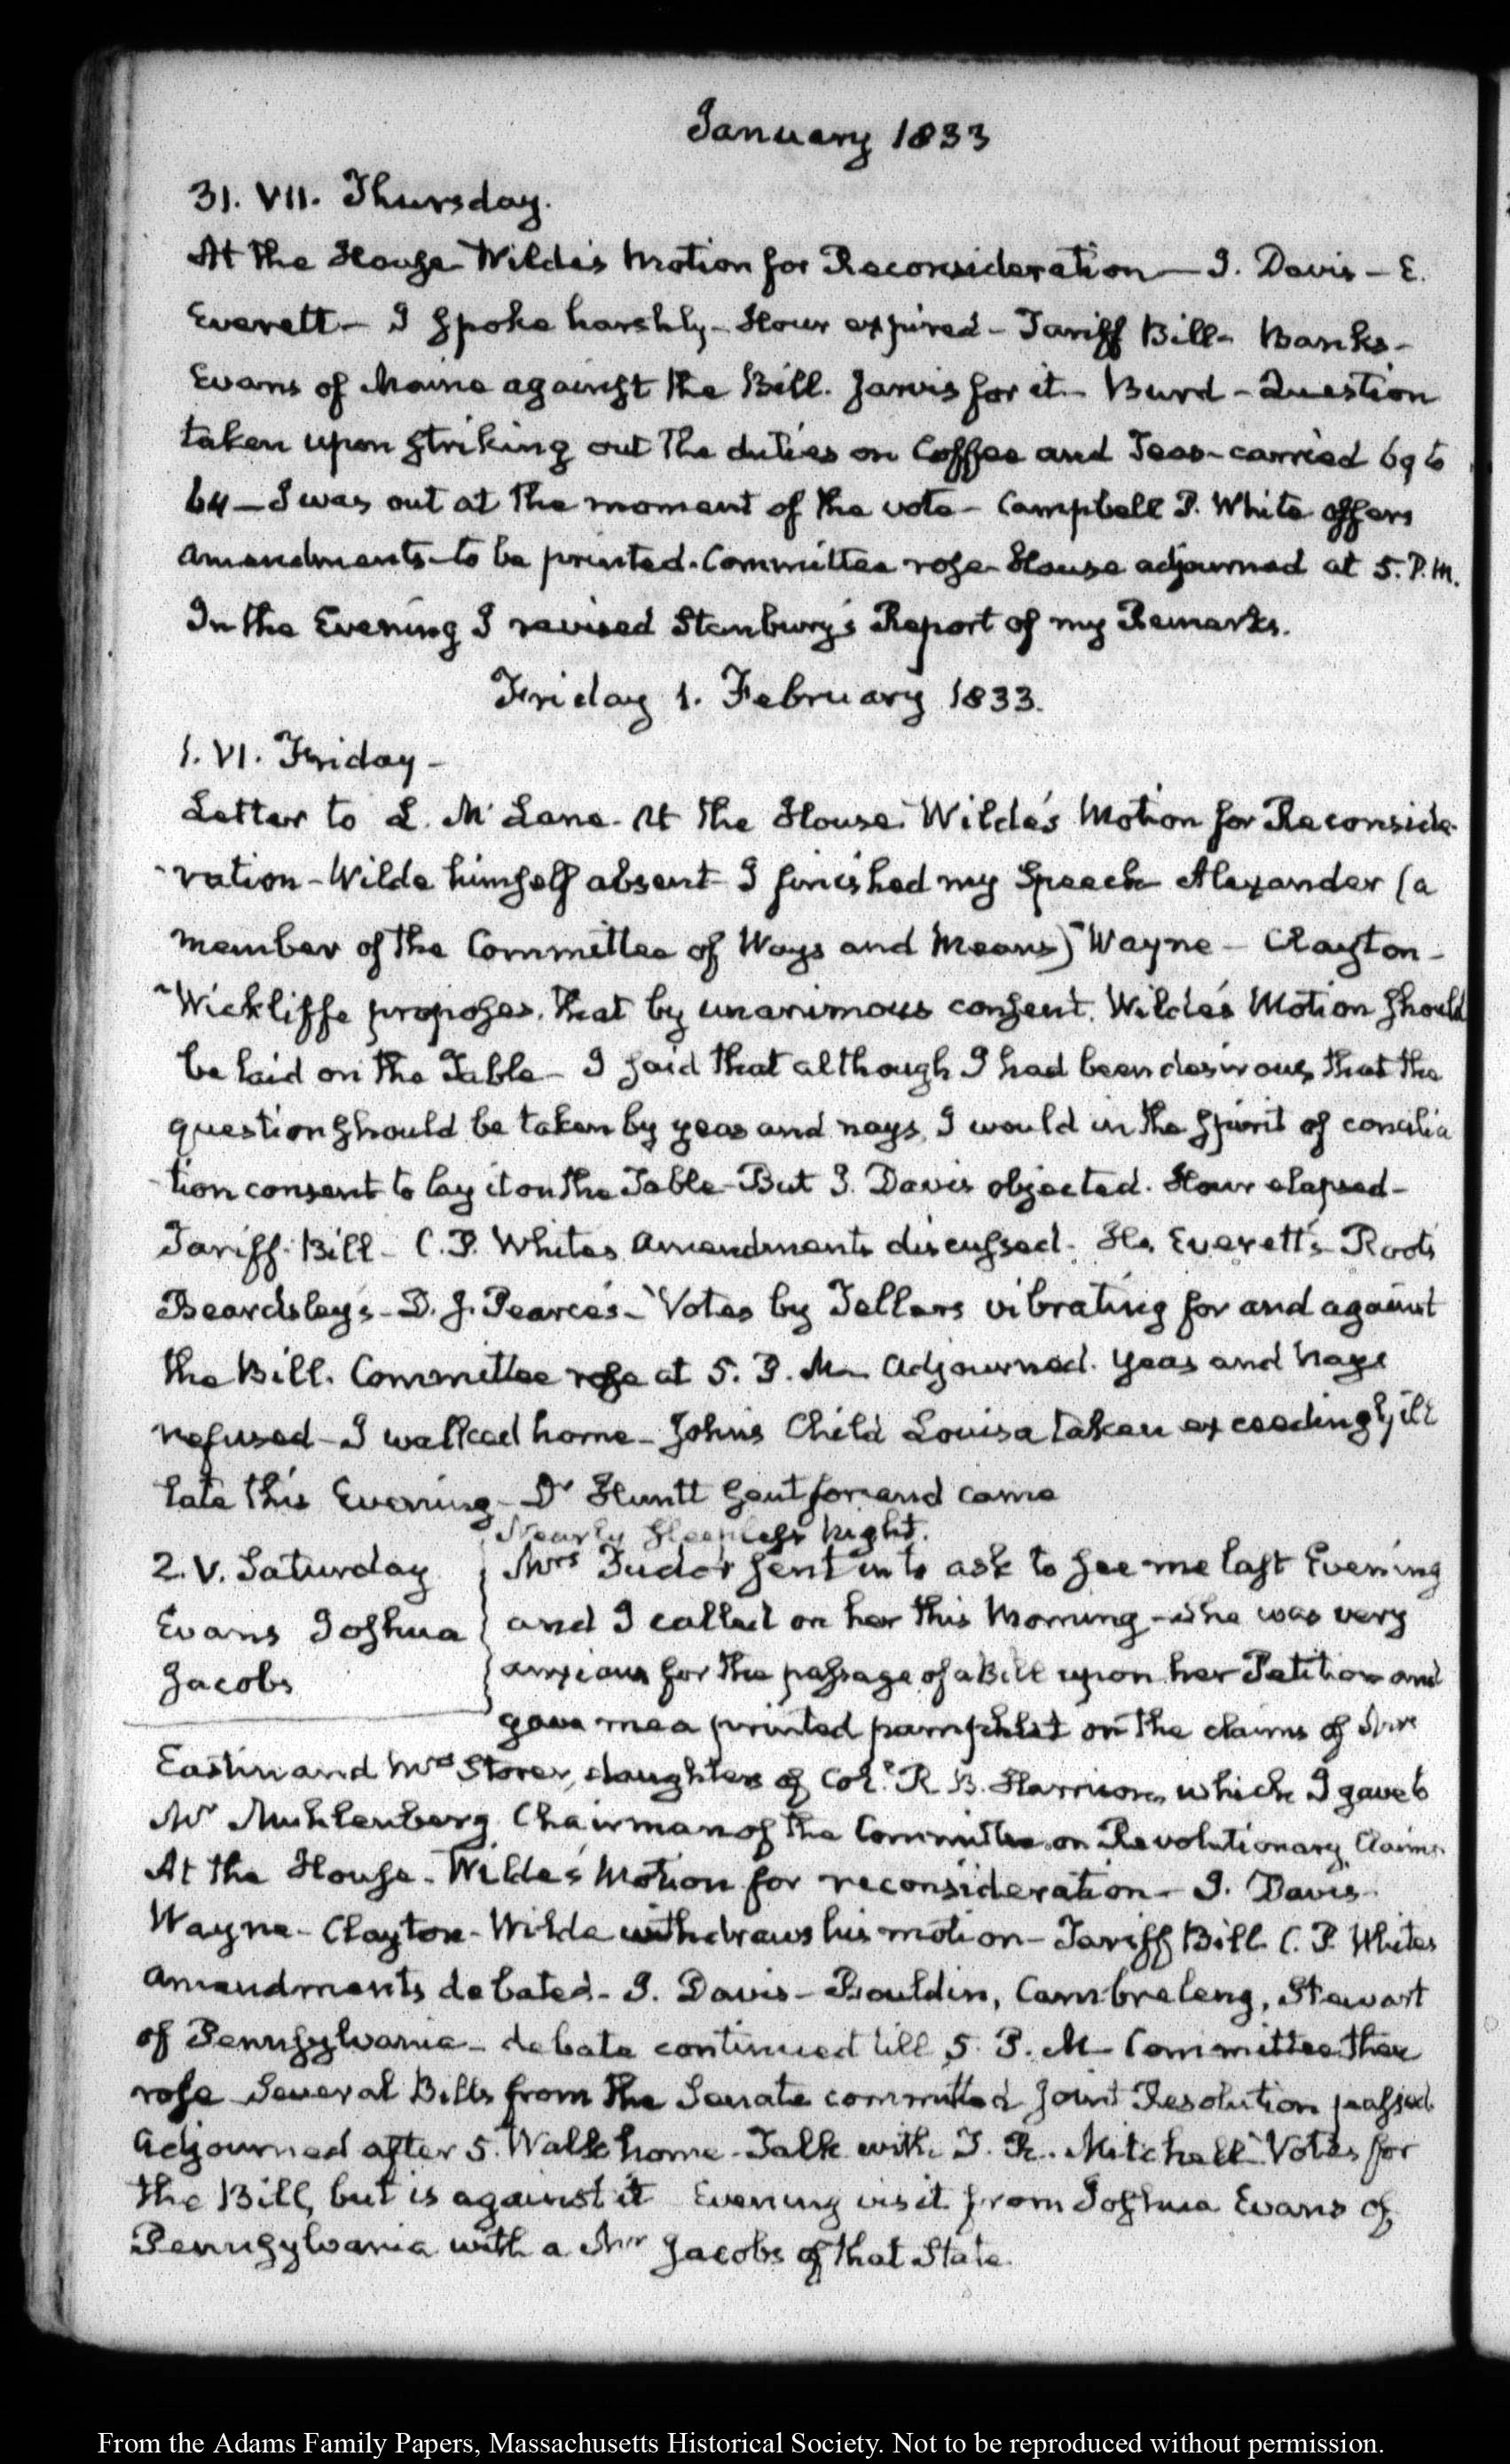 January 1833
31. VII. Thursday.
At the House Wilde's Motion for Reconsideration — J. Davis – E.
Everett – I spoke harshly – Hour expired – Tariff Bill – Banks –
Evans of Maine against the Bill. Jarvis for it – Burd – Question
taken upon striking out the duties on Coffee and Teas – carried 69 to
64 – I was out at the moment of the vote – Campbell P. White offers
amendments to be printed. Committee rose House adjourned at 5. P.M.
In the Evening I revised Stanbury's Report of my Remarks.
Friday 1. February 1833.
1. VI. Friday –
Letter to L. McLane. At the House. Wilde's Motion for Reconside-
-ration – Wilde himself absent – I finished my Speech – Alexander (a
member of the Committee of Ways and Means) Wayne – Clayton –
Wickliffe proposes, that by unanimous consent. Wilde's Motion should
be laid on the Table – I said that although I had been desirous that the
question should be taken by yeas and nays, I would in the spirit of concilia
-tion consent to lay it on the Table – But J. Davis objected. Hour elapsed –
Tariff Bill – C. P. Whites amendments discussed. Hs. Everett's – Root's
Beardsley's – D. J. Pearce's – Votes by Tellers vibrating for and against
the Bill. Committee rose at 5. P. M – Adjourned. Yeas and Nays
refused – I walked home – John's Child Louisa taken exceedingly ill
late this Evening – Dr Huntt sent for and came
Nearly sleepless Night.
2. V. Saturday
Evans Joshua
Jacobs
Mrs Tudor sent in to ask to see me last Evening
and I called on her this Morning – she was very
anxious for the passage of a Bill upon her Petition and
gave me a printed pamphlet on the claims of Mrs
Eastin and Mrs Storer, daughters of Col. R. B. Harrison, which I gave to
Mr Muhlenberg Chairman of the Committee on Revolutionary Claims.
At the House. Wilde's Motion for reconsideration – J. Davis –
Wayne – Clayton – Wilde withdraws his motion – Tariff Bill C. P. Whites
amendments debated – J. Davis – Bouldin, Cambreleng, Stewart
of Pennsylvania – debate continued till 5. P. M – Committee then
rose – Several Bills from the Senate committed Joint Resolution passed
Adjourned after 5. Walk home – Talk with T. R. Mitchell Votes for
the Bill, but is against it Evening visit from Joshua Evans of
Pennsylvania with a Mr Jacobs of that State.
From the Adams Family Papers, Massachusetts Historical Society. Not to be reproduced without permission.